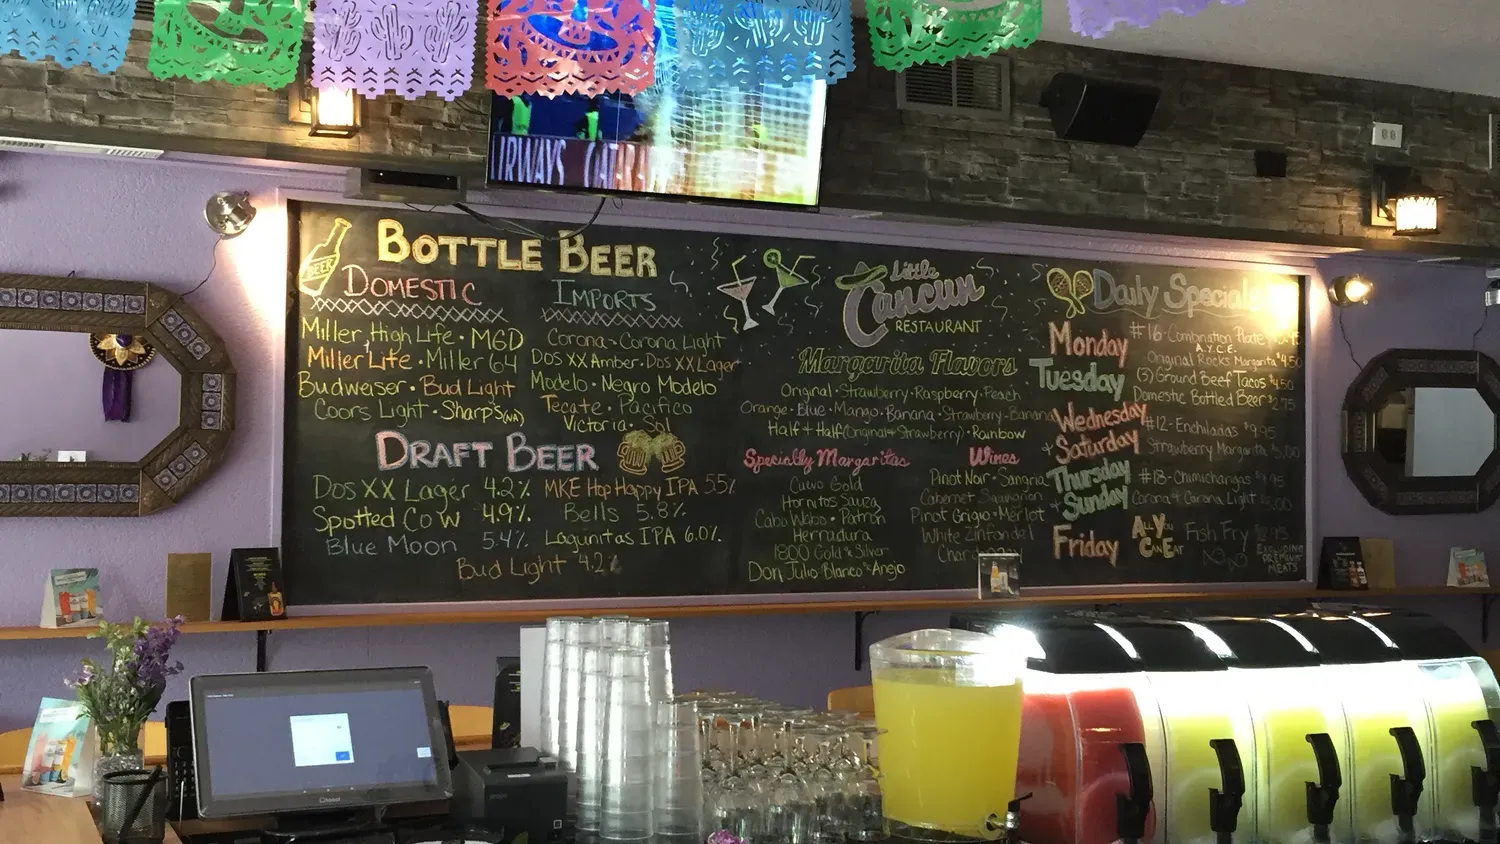 IRWAYS QATAR A
BOTTLE BEER
BEER
DOMESTIC
Miller High Life · MGD
Miller Lite · Miller 64
Budweiser · Bud Light
Coors Light · Sharp's (NA)
IMPORTS
Corona · Corona Light
Dos XX Amber · Dos XX Lager
Modelo · Negro Modelo
Tecate · Pacifico
Victoria · Sol
DRAFT BEER
Dos XX Lager 4.2% MKE Hop Happy IPA 5.5%
Spotted Cow 4.9% Bells 5.8%
Blue Moon 5.4% Lagunitas IPA 6.0%
Bud Light 4.2%
Little
Cancun
RESTAURANT
Margarita Flavors
Original · Strawberry · Raspberry · Peach
Orange · Blue · Mango · Banana · Strawberry-Banana
Half + Half (Original + Strawberry) · Rainbow
Specialty Margaritas
Cuevo Gold
Hornitos Sauza
Cabo Wabo · Patron
Herradura
1800 Gold & Silver
Don Julio Blanco & Anejo
Wines
Pinot Noir · Sangria
Cabernet Sauvignon
Pinot Grigio · Merlot
White Zinfandel
Daily Specials
Monday #16-Combination Plate
A.Y.C.E.
Original Rocks Margarita $4.50
Tuesday (3) Ground Beef Tacos $4.50
Domestic Bottled Beer $2.75
Wednesday #12-Enchiladas $9.95
+ Saturday Strawberry Margarita $5.00
Thursday #18-Chimichangas $9.95
+ Sunday Corona & Corona Light $5.00
Friday ALL YOU CAN EAT Fish Fry
EXCLUDING
MEATS